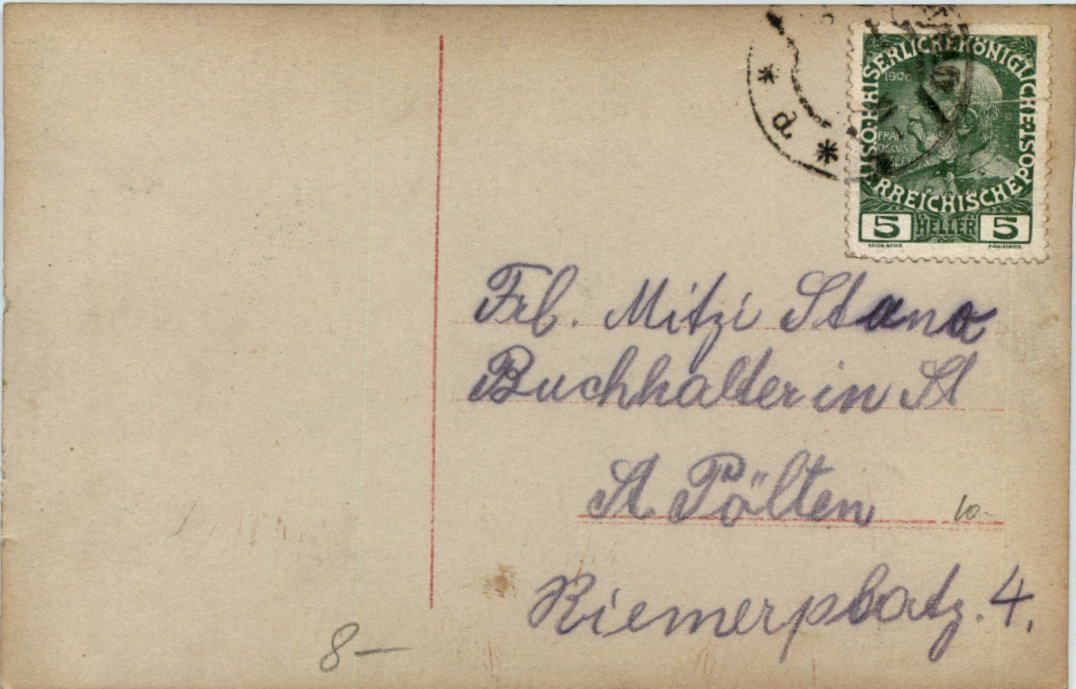 KAISERLICHE KÖNIGLICHE
ÖSTERREICHISCHE POST
5 HELLER 5
Frl. Mitzi Stano
Buchhalterin St
St Pölten
10-
Riemerplatz. 4.
8-